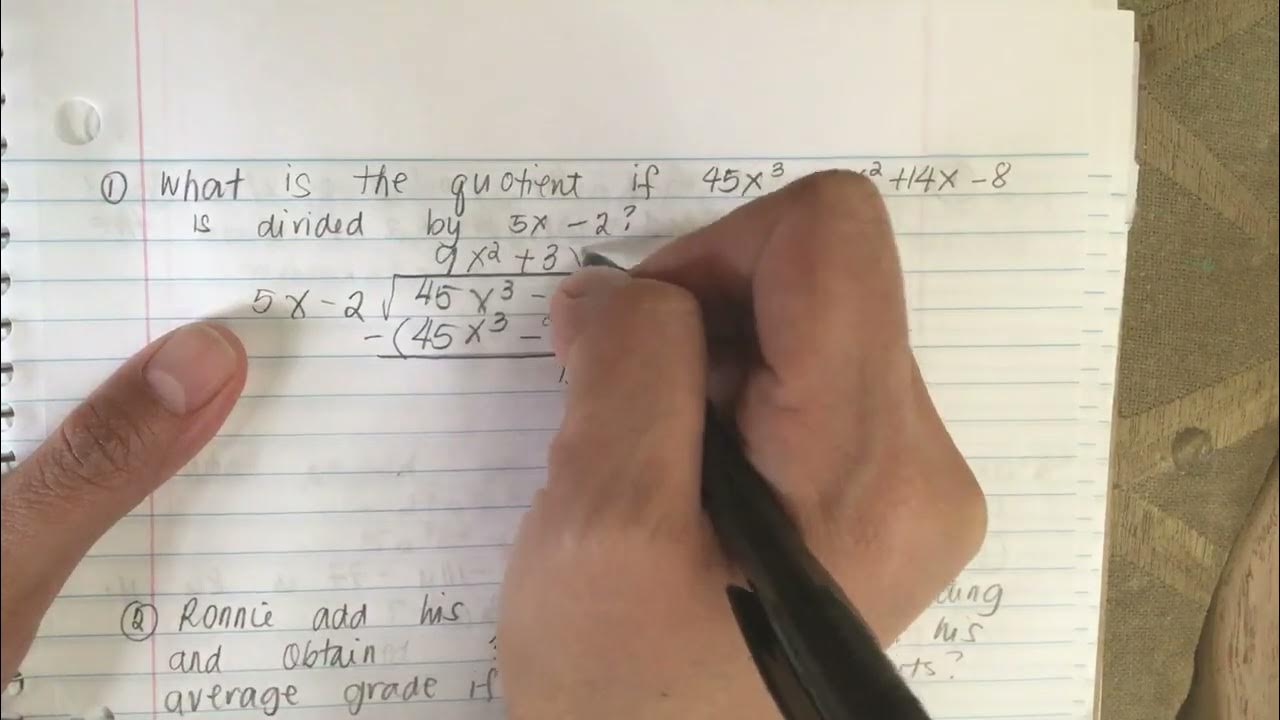 ① What is the quotient if 45x³ x² +14x -8
is divided by 5x - 2?
9x² + 3
5x - 2 √45x³ -
-(45x³ -
② Ronnie add his
and obtain his
average grade if